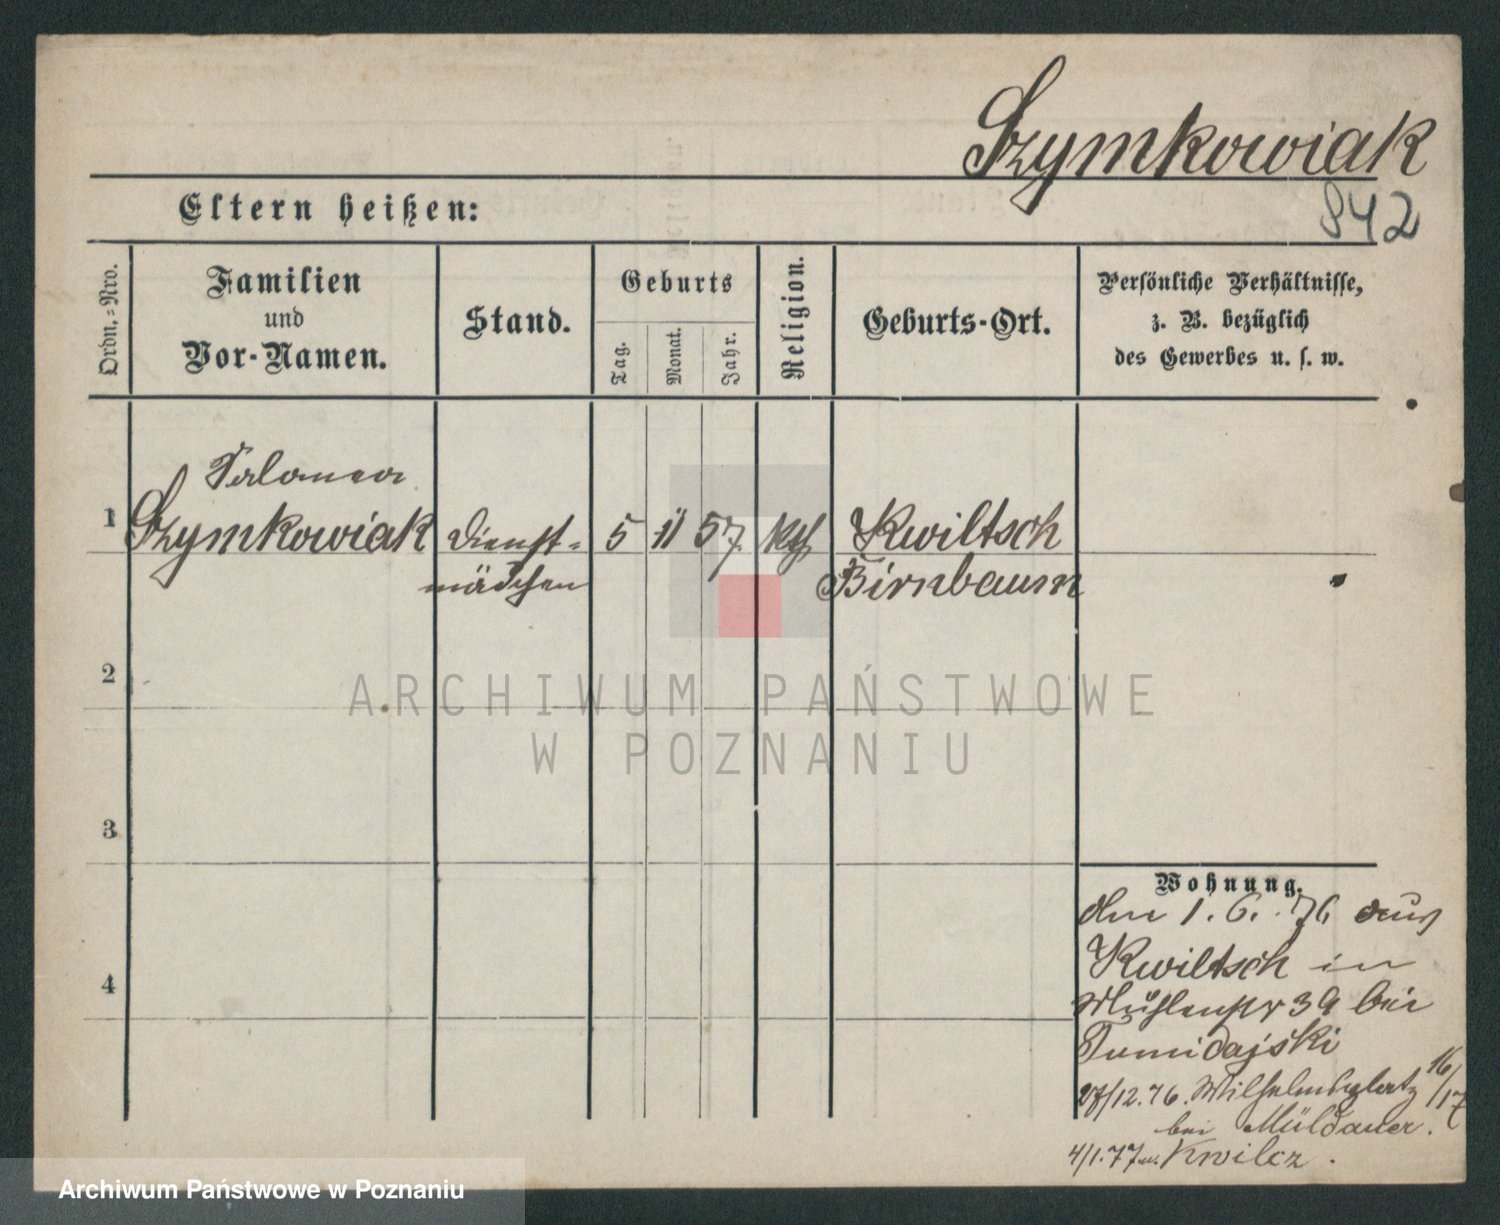 Szymkowiak
842
Eltern heißen:
Ordn.=Nro.
Familien
und
Vor-Namen.
Stand.
Geburts
Tag.
Monat.
Jahr.
Religion.
Geburts-Ort.
Persönliche Verhältnisse,
z. B. bezüglich
des Gewerbes u. s. w.
Salomea
1 Szymkowiak Dienst= 5 11 57. kth Kwiltsch
mädchen Birnbaum
2
3
4
Wohnung.
den 1. 6. 76 aus
Kwiltsch in
Mühlenstr 39 bei
Tumidajski
27/12.76. Wilhelmsplatz 16/17
bei Müldauer.
4/1.77 n. Kwilcz.
ARCHIWUM PAŃSTWOWE
W POZNANIU
Archiwum Państwowe w Poznaniu